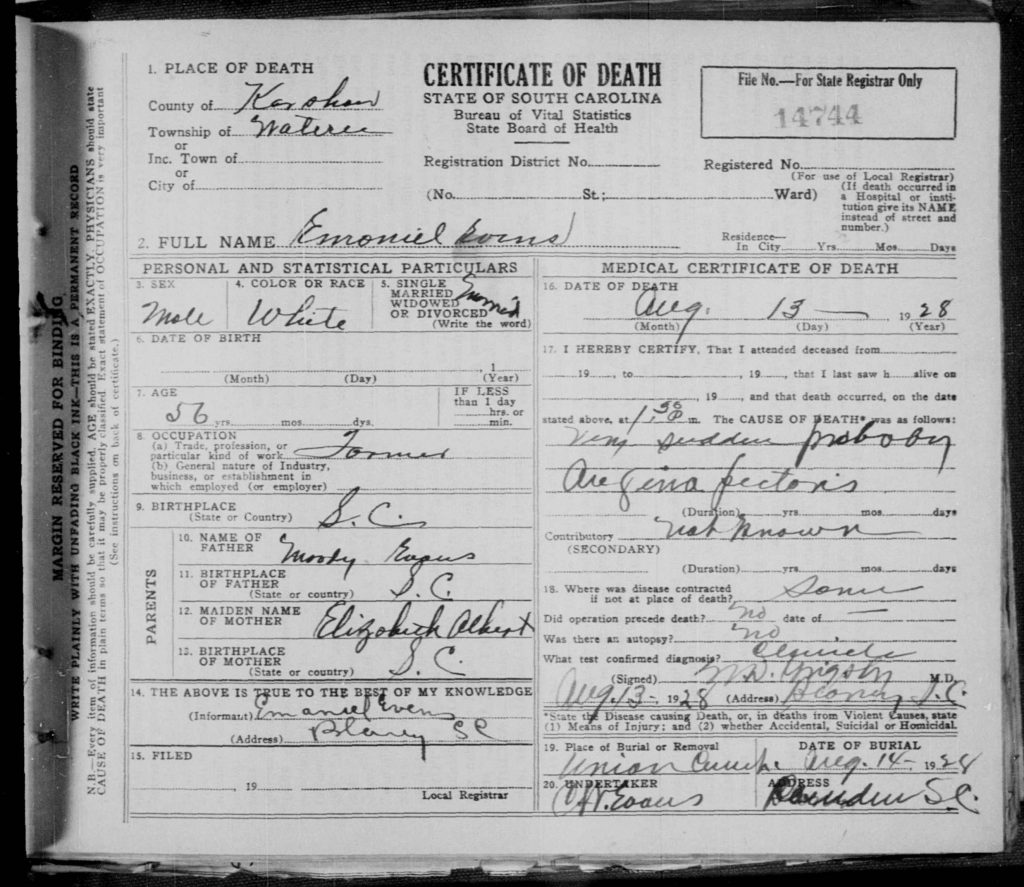 MARGIN RESERVED FOR BINDING
WRITE PLAINLY WITH UNFADING BLACK INK—THIS IS A PERMANENT RECORD
N. B.—Every item of information should be carefully supplied. AGE should be stated EXACTLY. PHYSICIANS should state
CAUSE OF DEATH in plain terms so that it may be properly classified. Exact statement of OCCUPATION is very important
(See instructions on back of certificate.)
CERTIFICATE OF DEATH
STATE OF SOUTH CAROLINA
Bureau of Vital Statistics
State Board of Health
File No.—For State Registrar Only
14744
1. PLACE OF DEATH
County of Kershaw
Township of Wateree
or
Inc. Town of
or
City of
Registration District No.
Registered No.
(For use of Local Registrar)
(No. St.; Ward)
(If death occurred in
a Hospital or insti-
tution give its NAME
instead of street and
number.)
2. FULL NAME Emoniel Evens
Residence—
In City Yrs. Mos. Days
PERSONAL AND STATISTICAL PARTICULARS
3. SEX
Male
4. COLOR OR RACE
White
5. SINGLE
MARRIED
WIDOWED
OR DIVORCED
(Write the word)
6. DATE OF BIRTH
, 1
(Month) (Day) (Year)
7. AGE
56 yrs. mos. dys.
IF LESS
than 1 day
hrs. or
min.
8. OCCUPATION
(a) Trade, profession, or
particular kind of work Farmer
(b) General nature of Industry,
business, or establishment in
which employed (or employer)
9. BIRTHPLACE
(State or Country) S. C.
PARENTS
10. NAME OF
FATHER Moody Evans
11. BIRTHPLACE
OF FATHER
(State or country) S. C.
12. MAIDEN NAME
OF MOTHER Elizabeth Albert
13. BIRTHPLACE
OF MOTHER
(State or country) S. C.
14. THE ABOVE IS TRUE TO THE BEST OF MY KNOWLEDGE
(Informant) Emanuel Evens
(Address) Blaney SC
15. FILED
, 19
Local Registrar
MEDICAL CERTIFICATE OF DEATH
16. DATE OF DEATH
Aug. 13 — 1928
(Month) (Day) (Year)
17. I HEREBY CERTIFY, That I attended deceased from
, 19 , to , 19 , that I last saw h alive on
, 19 , and that death occurred, on the date
stated above, at m. The CAUSE OF DEATH* was as follows:
Very sudden probably
Angina Pectoris
(Duration) yrs. mos. days
Contributory Not Known
(SECONDARY)
(Duration) yrs. mos. days
18. Where was disease contracted
if not at place of death? Same
Did operation precede death? No date of —
Was there an autopsy? No
What test confirmed diagnosis?
(Signed) M.D.
Aug 13 - 1928 (Address) Blaney S.C.
*State the Disease causing Death, or, in deaths from Violent Causes, state
(1) Means of Injury; and (2) whether Accidental, Suicidal or Homicidal.
19. Place of Burial or Removal
Union
DATE OF BURIAL
Aug. 14 - 1928
20. UNDERTAKER
Evans
ADDRESS
Camden S.C.